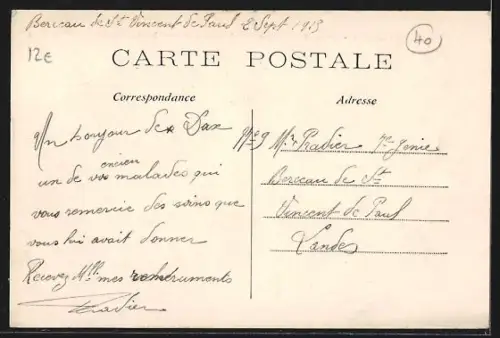 Berceau de St Vincent de Paul 2 Sept 1913
40
12€
CARTE POSTALE
Correspondance
Adresse
Un bonjour de Dax
un de vos ancien malades qui
vous remercie des soins que
vous lui avait donner
Recevez Mlle mes
Pradier
Mr Pradier 7e Genie
Berceau de St
Vincent de Paul
Landes